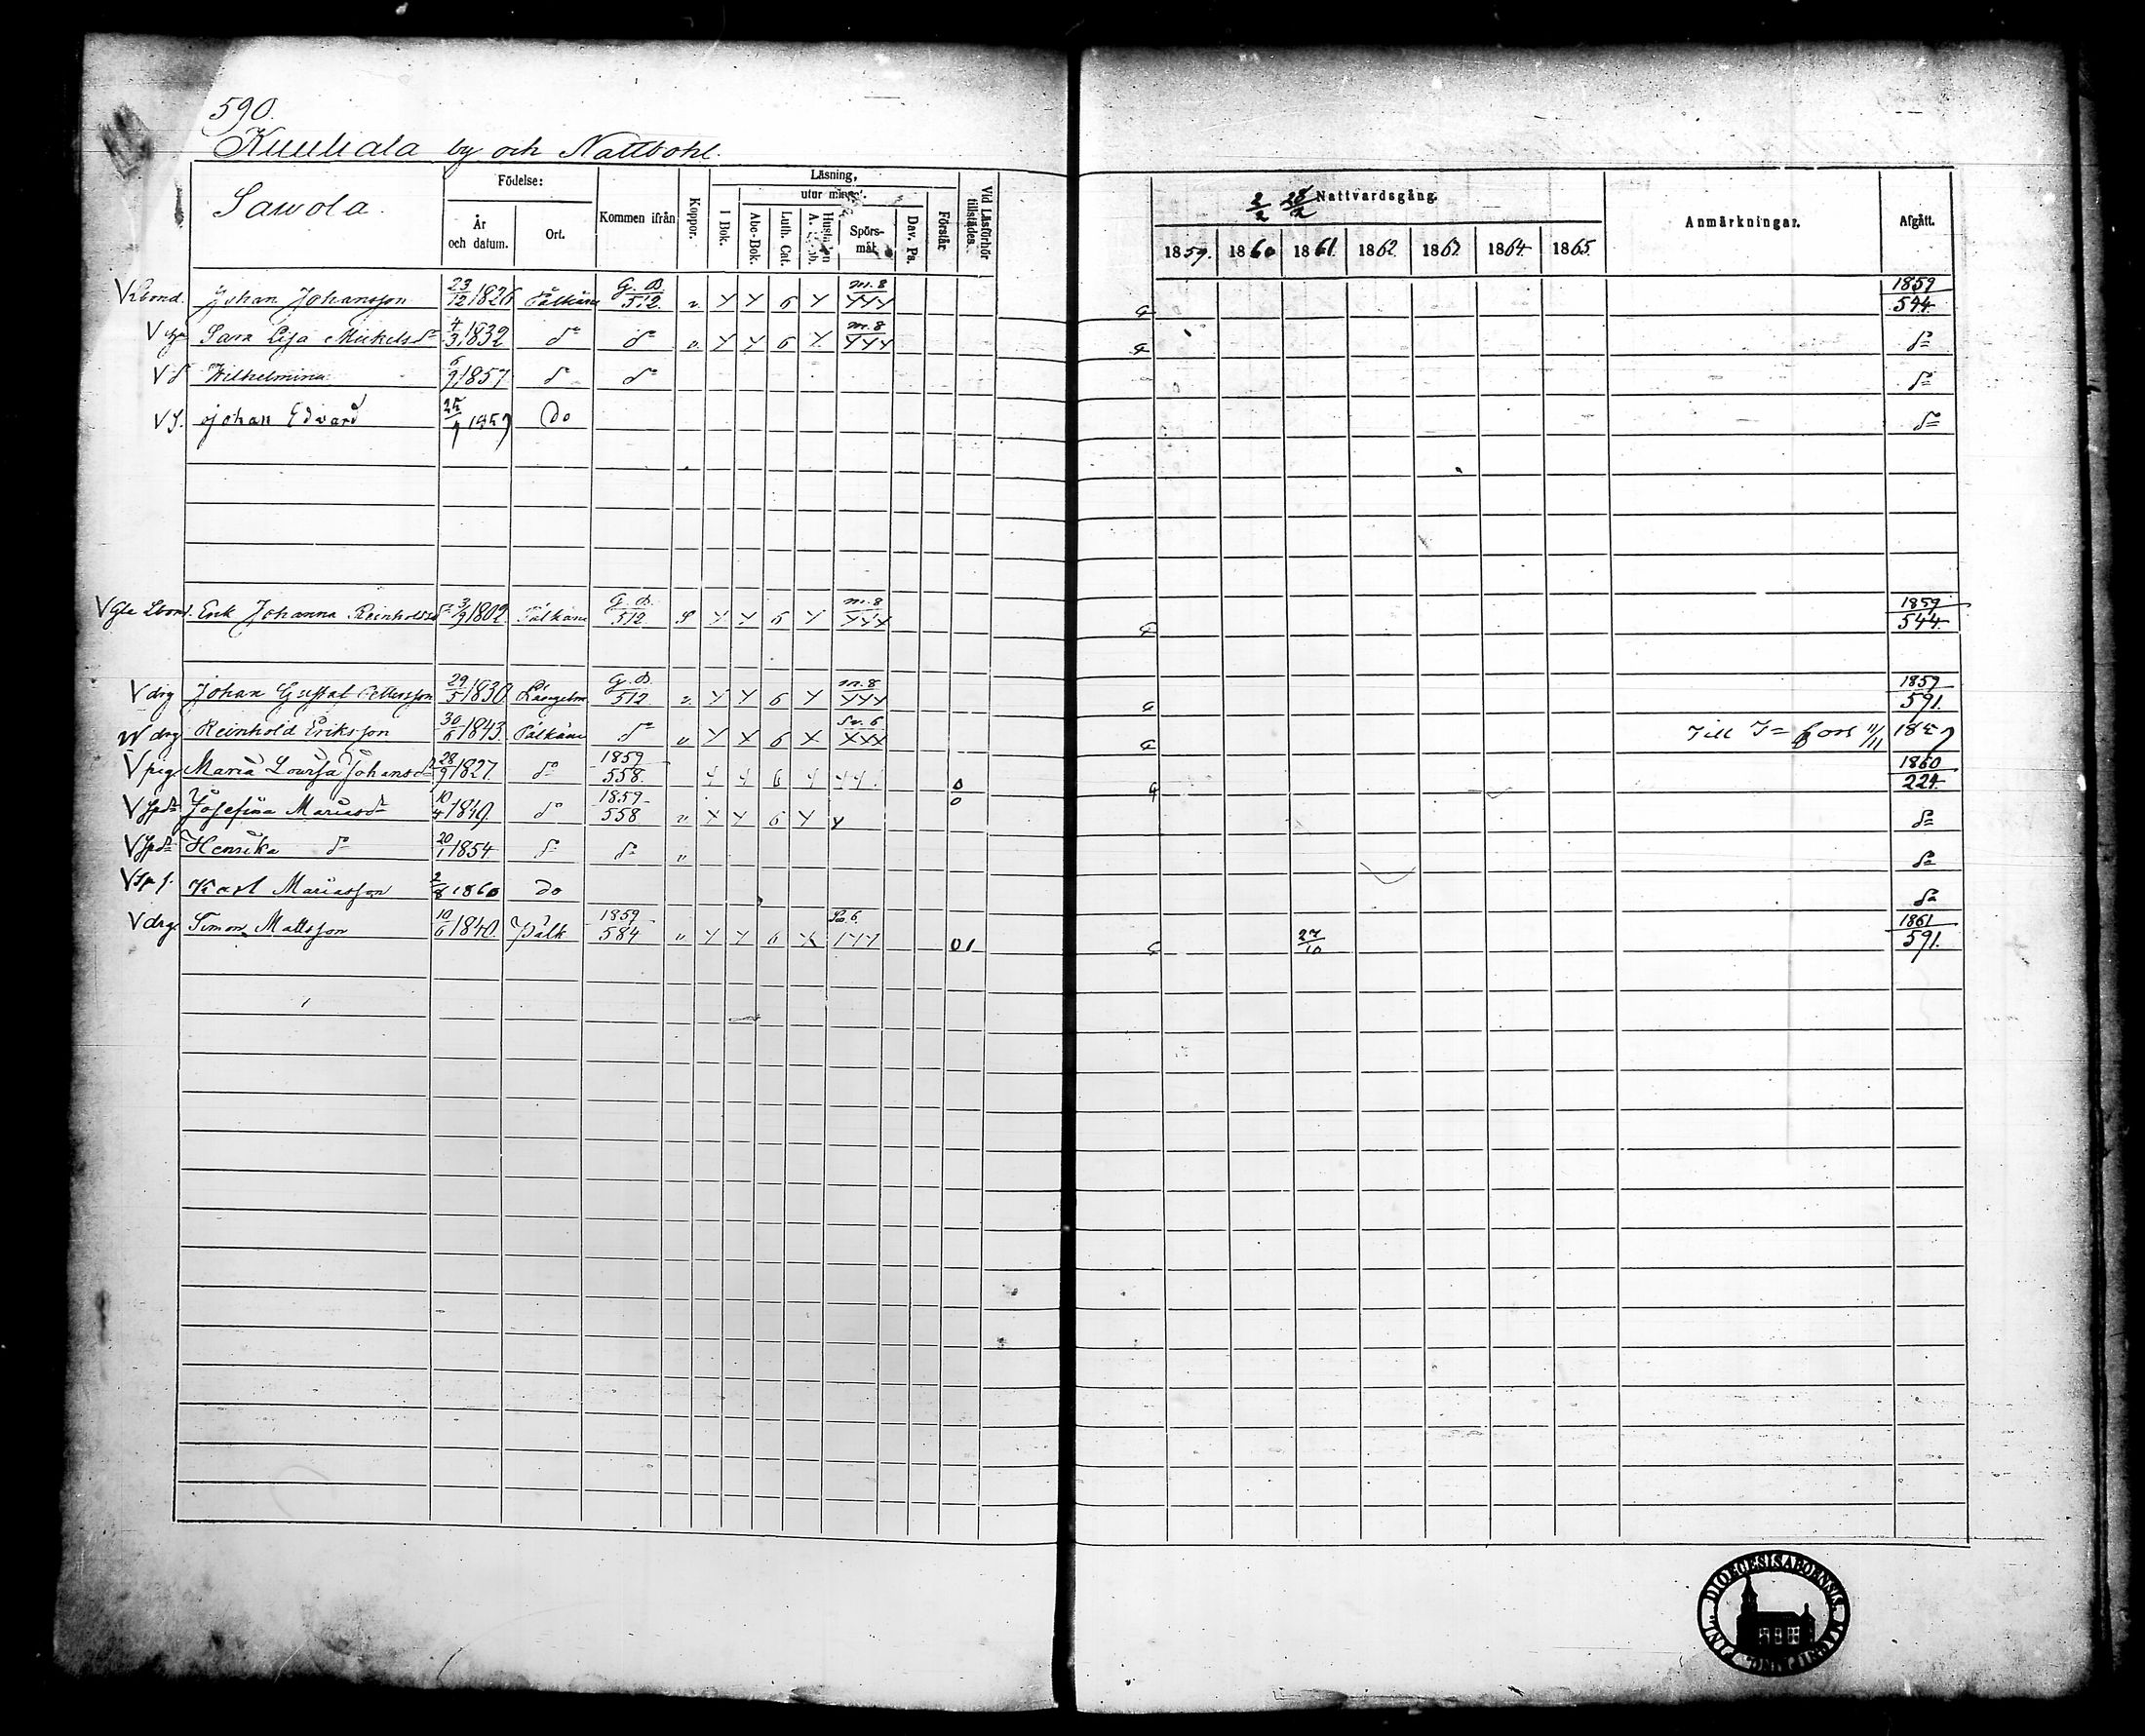 590.
Kuuliala by och Nattbohl.
Sawola.
Födelse:
År och datum.
Ort.
Kommen ifrån
Koppor.
Läsning,
I Bok.
utur minnet.
Abc-Bok.
Luth. Cat.
Spörs-mål
Dav. Ps.
Förstår
Vid Läsförhör tillstädes.
2/2 28/2 Nattvardsgång.
1859. 1860 1861. 1862. 1863 1864. 1865.
Anmärkningar.
Afgått.
V Lbond. Johan Johansson 23/12 1826 Pälkäne G. B. 512. v. Y Y 6 Y m. 8 YYY G 1859 544.
V hu Sara Lisa Mickelsdr 4/3 1832 do do v. Y Y 6 Y m. 8 YYY G do
V d Wilhelmina 6/9 1857 do do do
V S. Johan Edvard 1859 Do do
V Gla Lbond. Enk Johanna Reinholdsdr 3/9 1802. Pälkäne G. B. 512. Y Y 6 Y m. 8 YYY G 1859 544.
V drg Johan Gustaf 29/5 1830 Längelm G. B. 512 v. Y Y 6 Y m. 8 YYY G 1859 591.
V drg Reinhold Eriksson 30/6 1843. Pälkäne do v Y X 6 X Sv. 6 XXX G Till fors 11/11 1859
V pig Maria Lovisa Johansdr 28/9 1827. do 1859 558. Y Y 6 Y YY. 0 G 1860 224.
V Josefina Mariasdr 10/4 1849. do 1859 558 v. Y Y 6 Y Y 0 do
V Henrika do 20/1 1854 do do v do
V Karl Mariasson 2/8 1860 Do do
V drg Simon Mattsson 10/6 1840. Pälk 1859 584 v Y Y 6 X YYY 01 G 27/10 1861 591.
SIGILL. DIOECESIS ABOENSIS